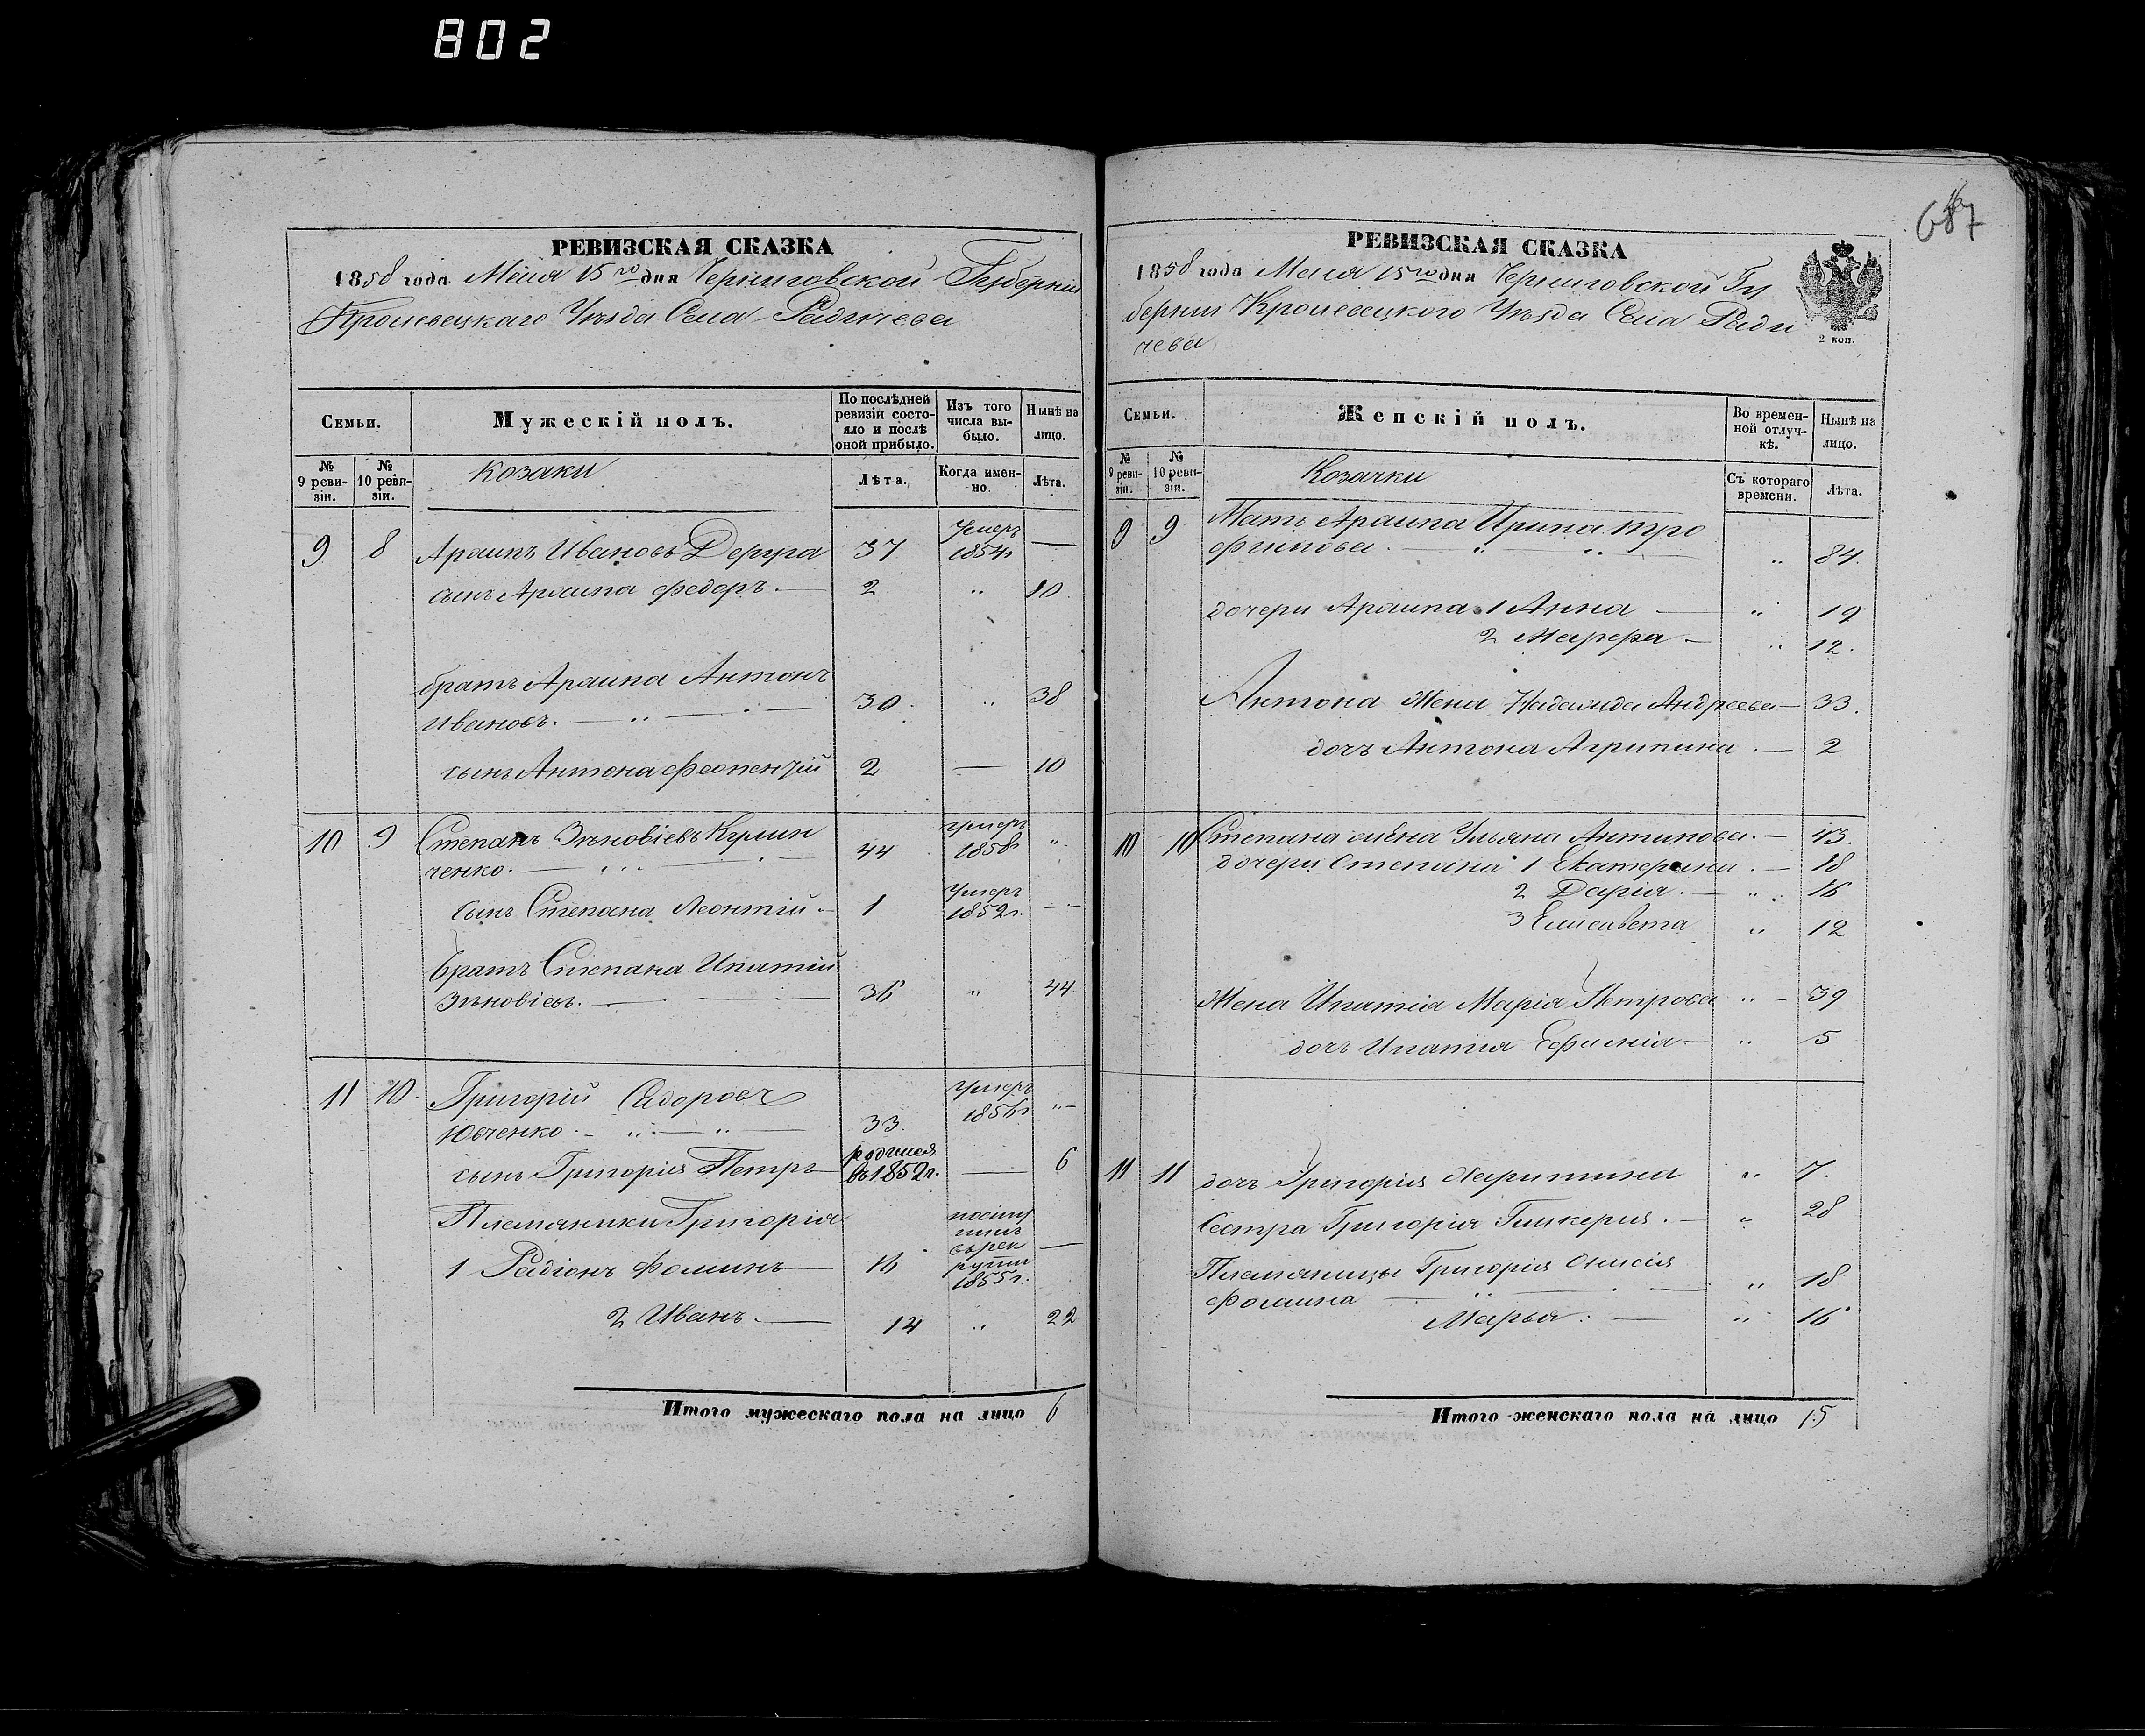 802
687
РЕВИЗСКАЯ СКАЗКА
1858 года Маия 15го дня Черниговской Губернии
Кролевецкаго Уѣзда Села Радичева
Семьи.
Мужескій полъ.
По послѣдней ревизіи состояло и послѣ оной прибыло.
Изъ того числа выбыло.
Нынѣ на лицо.
№ 9 ревизіи.
№ 10 ревизіи.
Козаки
Лѣта.
Когда именно.
Лѣта.
9 8 Архипъ Ивановъ 37 Умеръ 1854г —
сынъ Архипа Федоръ. — 2 „ 10
братъ Архипа Антонъ
Ивановъ. — „ — 30 „ 38
сынъ Антона 2 — 10
10 9 Степанъ Зѣновіевъ Кулин
ченко. — 44 умеръ 1858г „
сынъ Степана Леонтій — 1 Умеръ 1852г. —
братъ Степана Ипатій
Зѣновіевъ. — 36 „ 44
11 10 Григорій Сидоровъ
Ювченко — „ — „ — 33. умеръ 1856г „—
сынъ Григорія Петръ родился въ 1852г. — 6
Племяники Григорія
1 Радіонъ Фоминъ — 16 поступилъ въ рекруты 1855г. —
2 Иванъ. — 14 „ 22
Итого мужескаго пола на лицо 6
РЕВИЗСКАЯ СКАЗКА
1858 года Маия 15го дня Черниговской Гу
берніи Кролевецкого Уѣзда Села Ради
чева
2 коп.
Семьи.
Женскій полъ.
Во временной отлучкѣ.
Нынѣ на лицо.
№ 9 ревизіи.
№ 10 ревизіи.
Козачки
Съ котораго времени.
Лѣта.
9 9 Мать Архипа Ирина Тро
фимова. — „ — „ 84.
дочери Архипа 1 Анна — „ 19
2 Марфа — „ 12.
Антона Жена Андреева — 33.
дочь Антона Агрипина. — 2
10 10 Степана жена Ульяна Антипова. — 43.
дочери Степана 1 Екатерина. — 18
2 Дарія. — „ 16
3 Елисавета „ 12
Жена Ипатія Марія Петрова „ — 39
дочь Ипатія Ефимія — „ 5
11 11 дочь Григорія Харитина „ 7.
Сестра Григорія Гликерия. — „ 28
Племяницы Григорія Анисія
Фомина — „ 18
Марья. — „ 16
Итого женскаго пола на лицо 15